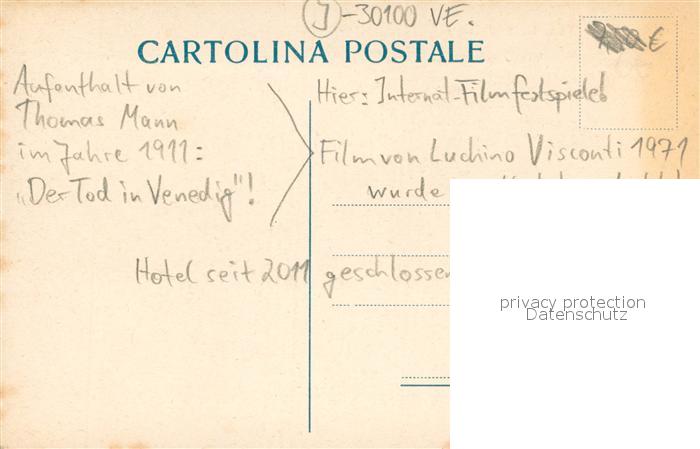 (J)-30100 VE.
CARTOLINA POSTALE
€
Aufenthalt von
Thomas Mann
im Jahre 1911:
"Der Tod in Venedig"!
Hier: Internat-Filmfestspiele!
Film von Luchino Visconti 1971
wurde
Hotel seit 2011 geschlossen
privacy protection
Datenschutz